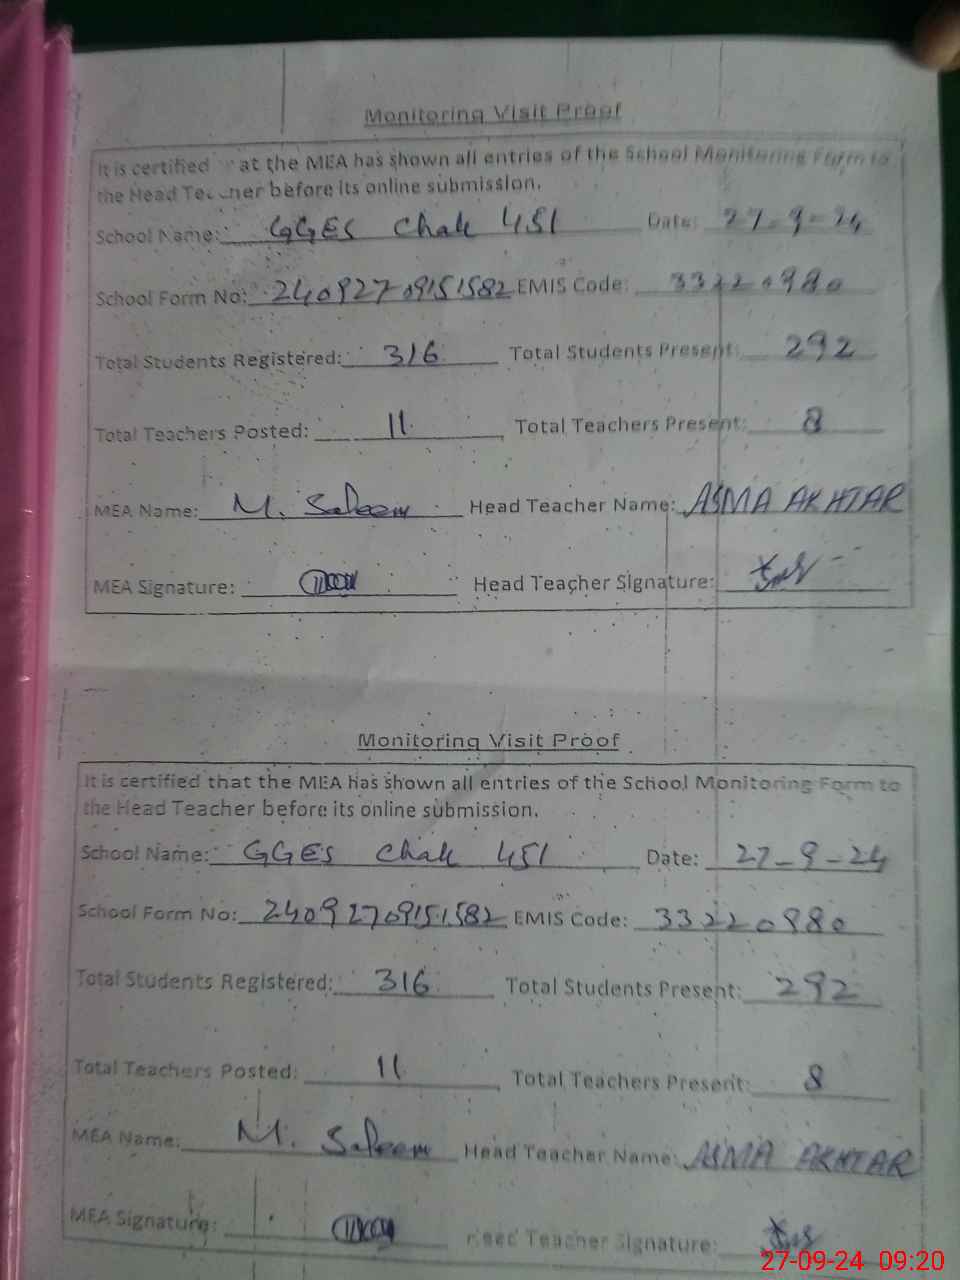 Monitoring Visit Proof
It is certified at the MEA has shown all entries of the School Monitoring Form to
the Head Teacher before its online submission.
School Name: GGES Chak 451 Date: 27-9-24
School Form No: 24092709151582 EMIS Code: 33220980
Total Students Registered: 316 Total Students Present: 292
Total Teachers Posted: 11 Total Teachers Present: 8
MEA Name: M. Saleem Head Teacher Name: ASMA AKHTAR
MEA Signature: Head Teacher Signature:
Monitoring Visit Proof
It is certified that the MEA has shown all entries of the School Monitoring Form to
the Head Teacher before its online submission.
School Name: GGES Chak 451 Date: 27-9-24
School Form No: 24092709151582 EMIS Code: 33220980
Total Students Registered: 316 Total Students Present: 292
Total Teachers Posted: 11 Total Teachers Present: 8
MEA Name: M. Saleem Head Teacher Name: ASMA AKHTAR
MEA Signature: Head Teacher Signature:
27-09-24 09:20